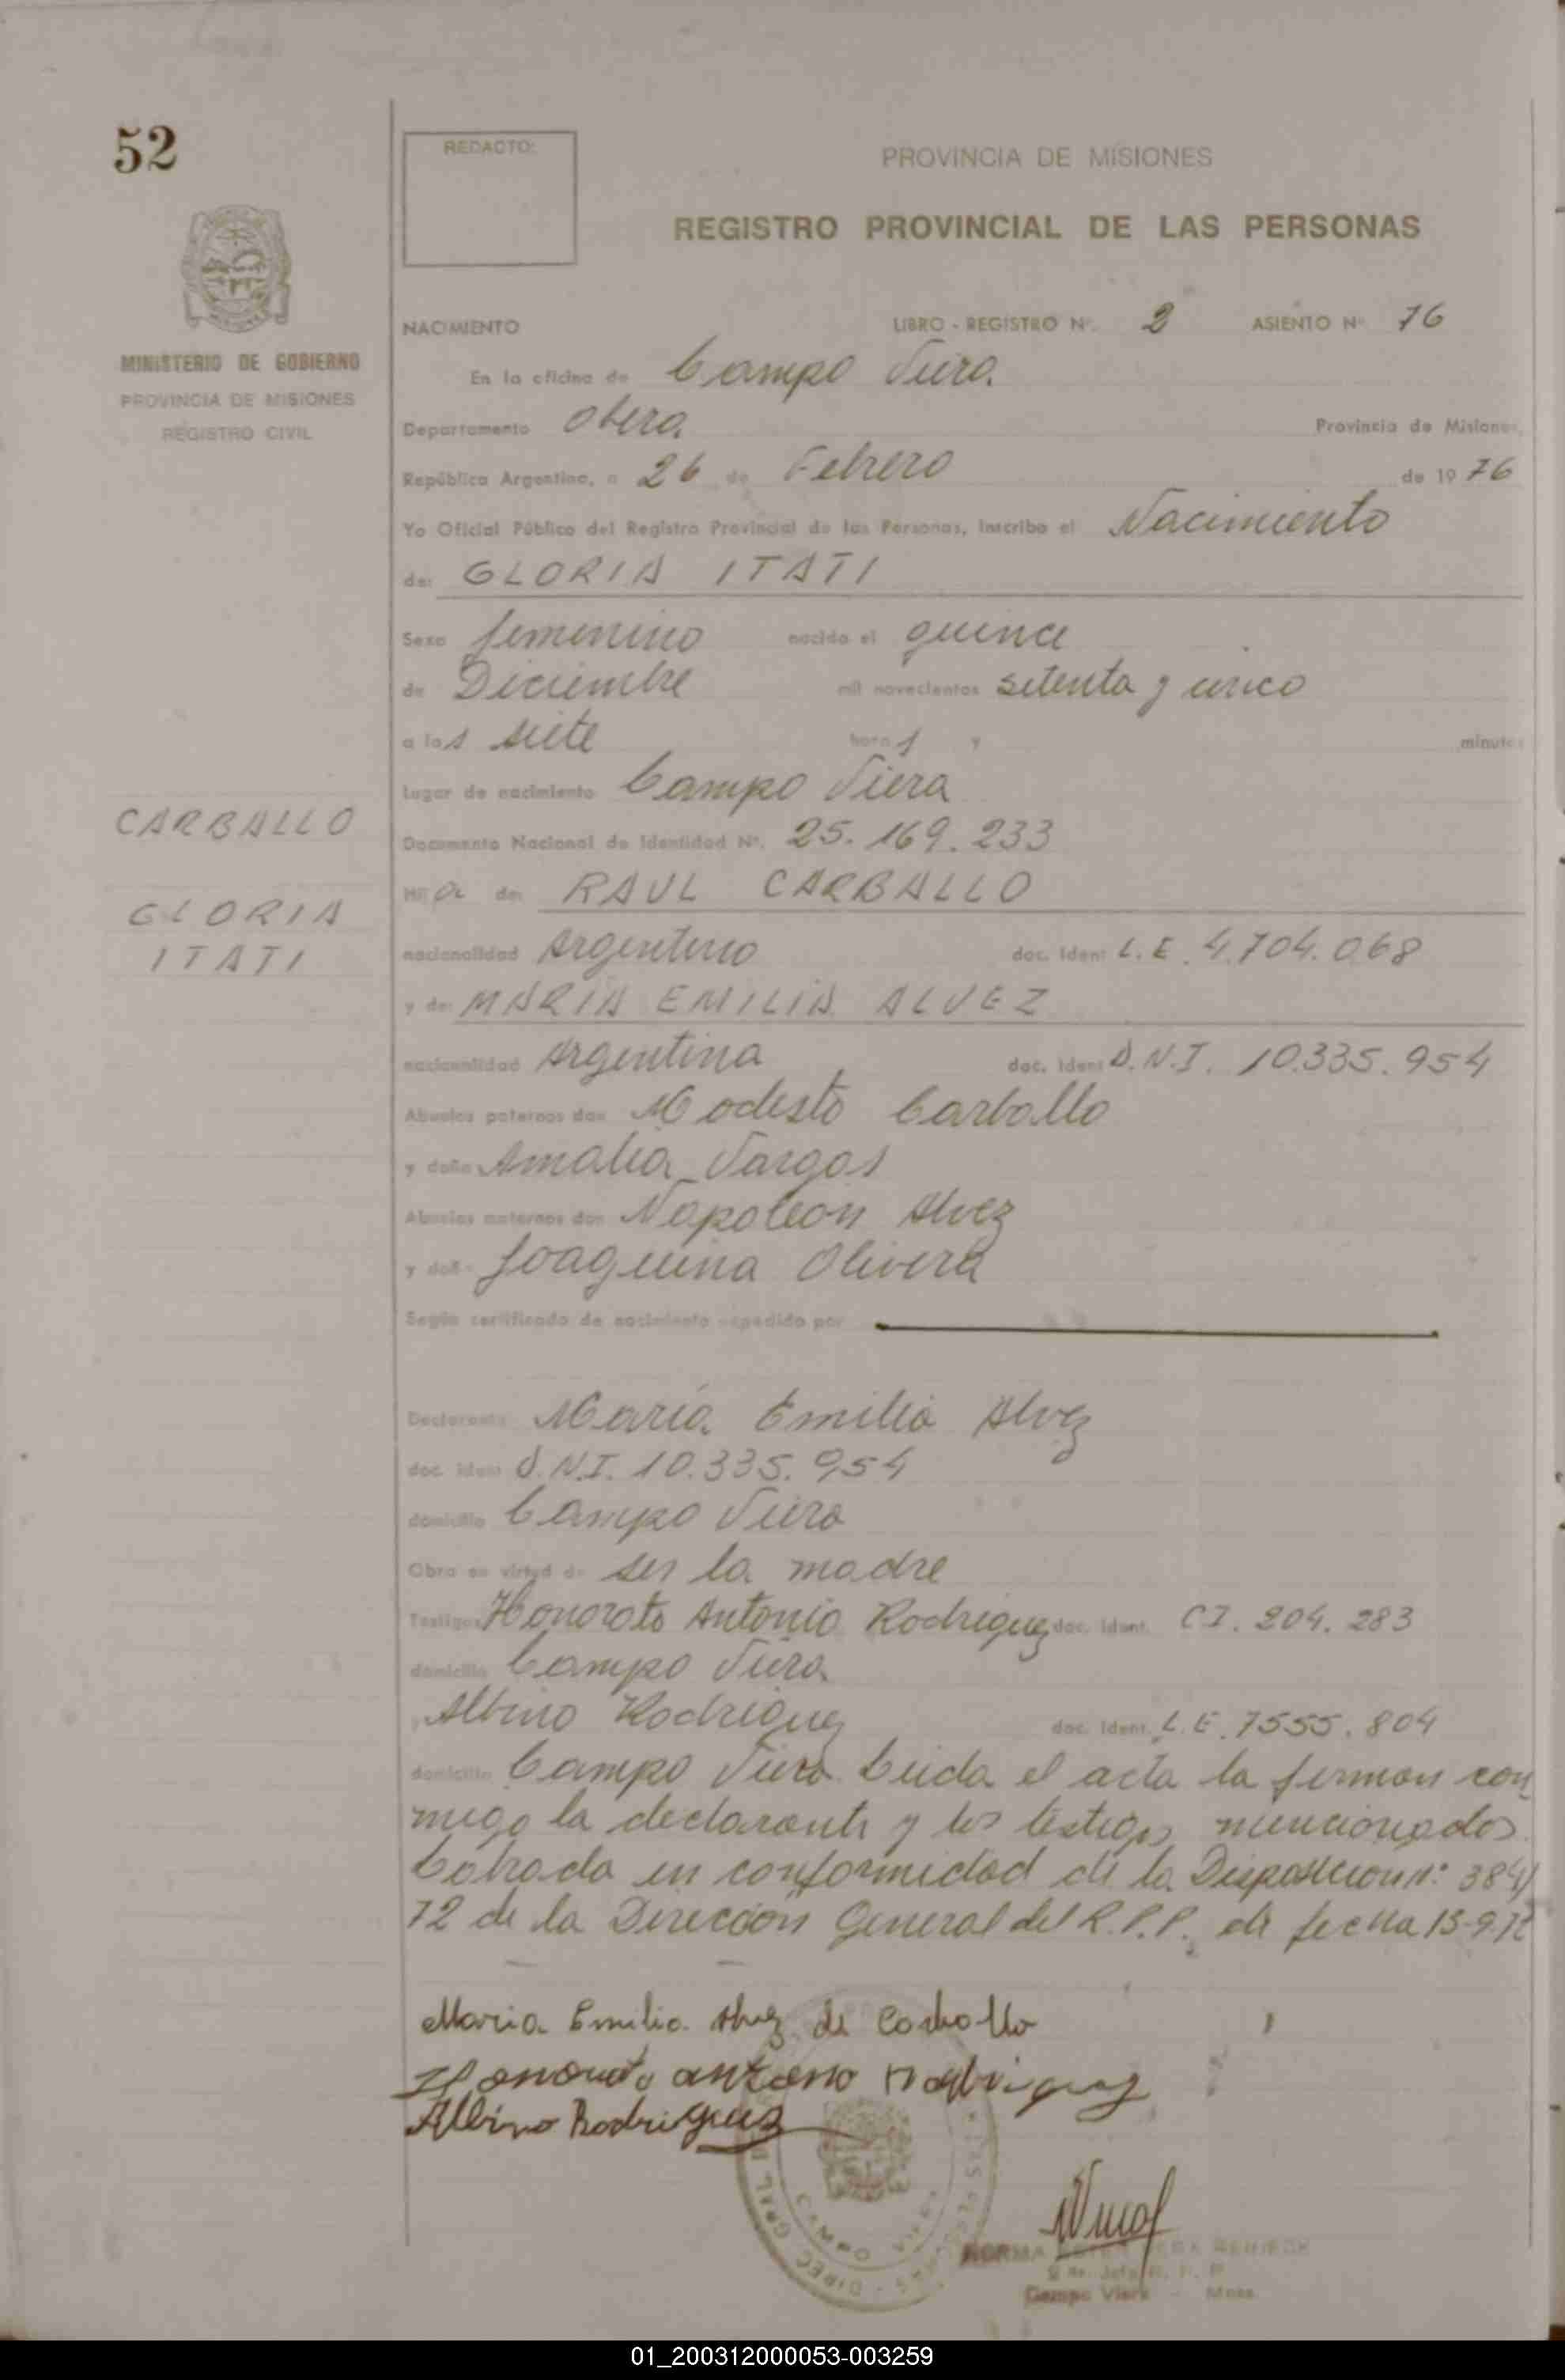 52
REDACTO:
PROVINCIA DE MISIONES
REGISTRO PROVINCIAL DE LAS PERSONAS
MINISTERIO DE GOBIERNO
PROVINCIA DE MISIONES
REGISTRO CIVIL
NACIMIENTO LIBRO - REGISTRO Nº. 2 ASIENTO Nº 76
En la oficina de Campo Viera
Departamento Obera Provincia de Misiones,
República Argentina, a 26 de Febrero de 1976
Yo Oficial Público del Registro Provincial de las Personas, inscribo el Nacimiento
de: GLORIA ITATI
Sexo femenino nacido el quince
de Diciembre mil novecientos setenta y cinco
a las siete horas y minutos
Lugar de nacimiento Campo Viera
CARBALLO
GLORIA
ITATI
Documento Nacional de Identidad Nº. 25.169.233
Hija de: RAUL CARBALLO
nacionalidad Argentino doc. Ident L.E. 4.704.068
y de: MARIA EMILIA ALVEZ
nacionalidad Argentina doc. Ident D.N.I. 10.335.954
Abuelos paternos don Modesto Carballo
y doña Amalia Vargas
Abuelos maternos don Napoleon Alvez
y doña Joaquina Olivera
Según certificado de nacimiento expedido por
Declarante Maria Emilia Alvez
doc. Ident D.N.I. 10.335.954
domicilio Campo Viera
Obra en virtud de ser la madre
Testigos Honorato Antonio Rodriguez doc. Ident. CI. 204.283
domicilio Campo Viera
Albino Rodriguez doc. Ident. L.E. 7555.804
domicilio Campo Viera Leida el acta la firman con
migo la declarante y los testigos mencionados.
Labrada en conformidad de la Disposicion n: 384/
72 de la Direccion General del R.P.P. de fecha 13-9-72
Maria Emilia Alvez de Carballo
Honorato antonio Rodriguez
Albino Rodriguez
NORMA
Campo Viera - Mnes
01_200312000053-003259